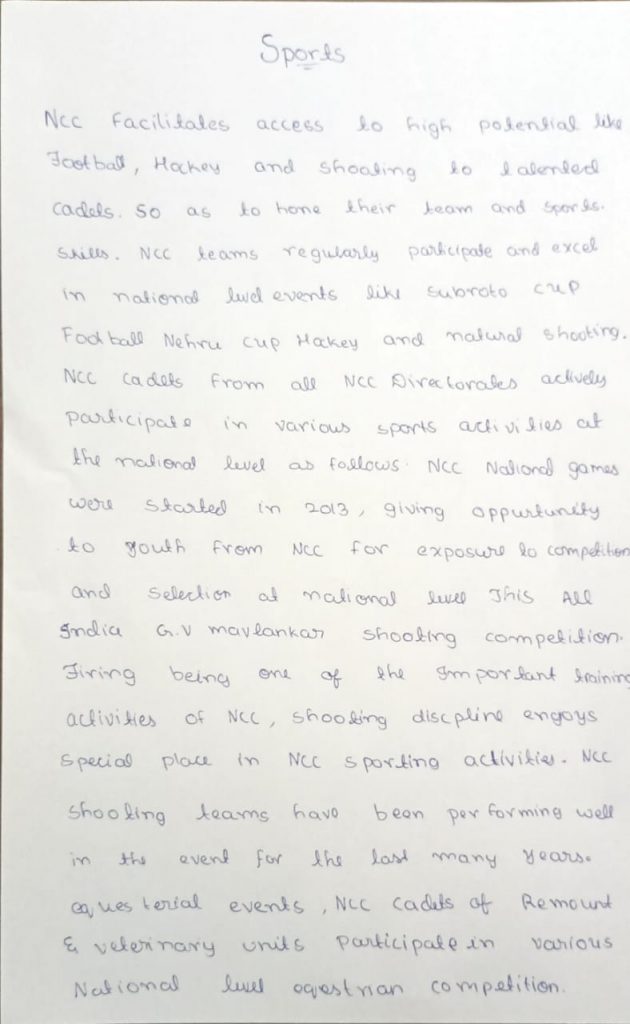 Sports
NCC Facilitates access to high potential like
Football, Hockey and shooting to talented
cadets. So as to hone their team and sports.
skills. NCC teams regularly participate and excel
in national level events like subroto cup
Football Nehru cup Hockey and natural shooting.
NCC cadets From all NCC Directorates actively
participate in various sports activities at
the national level as follows. NCC National games
were started in 2013, giving oppurtunity
to youth from NCC for exposure to competition
and selection at national level This All
India G.V mavlankar shooting competition.
Firing being one of the Important training
activities of NCC, shooting discpline engoys
special place in NCC sporting activities. NCC
shooting teams have been performing well
in the event for the last many years.
eques terial events, NCC cadets of Remount
& veterinary units participate in various
National level eqestrian competition.